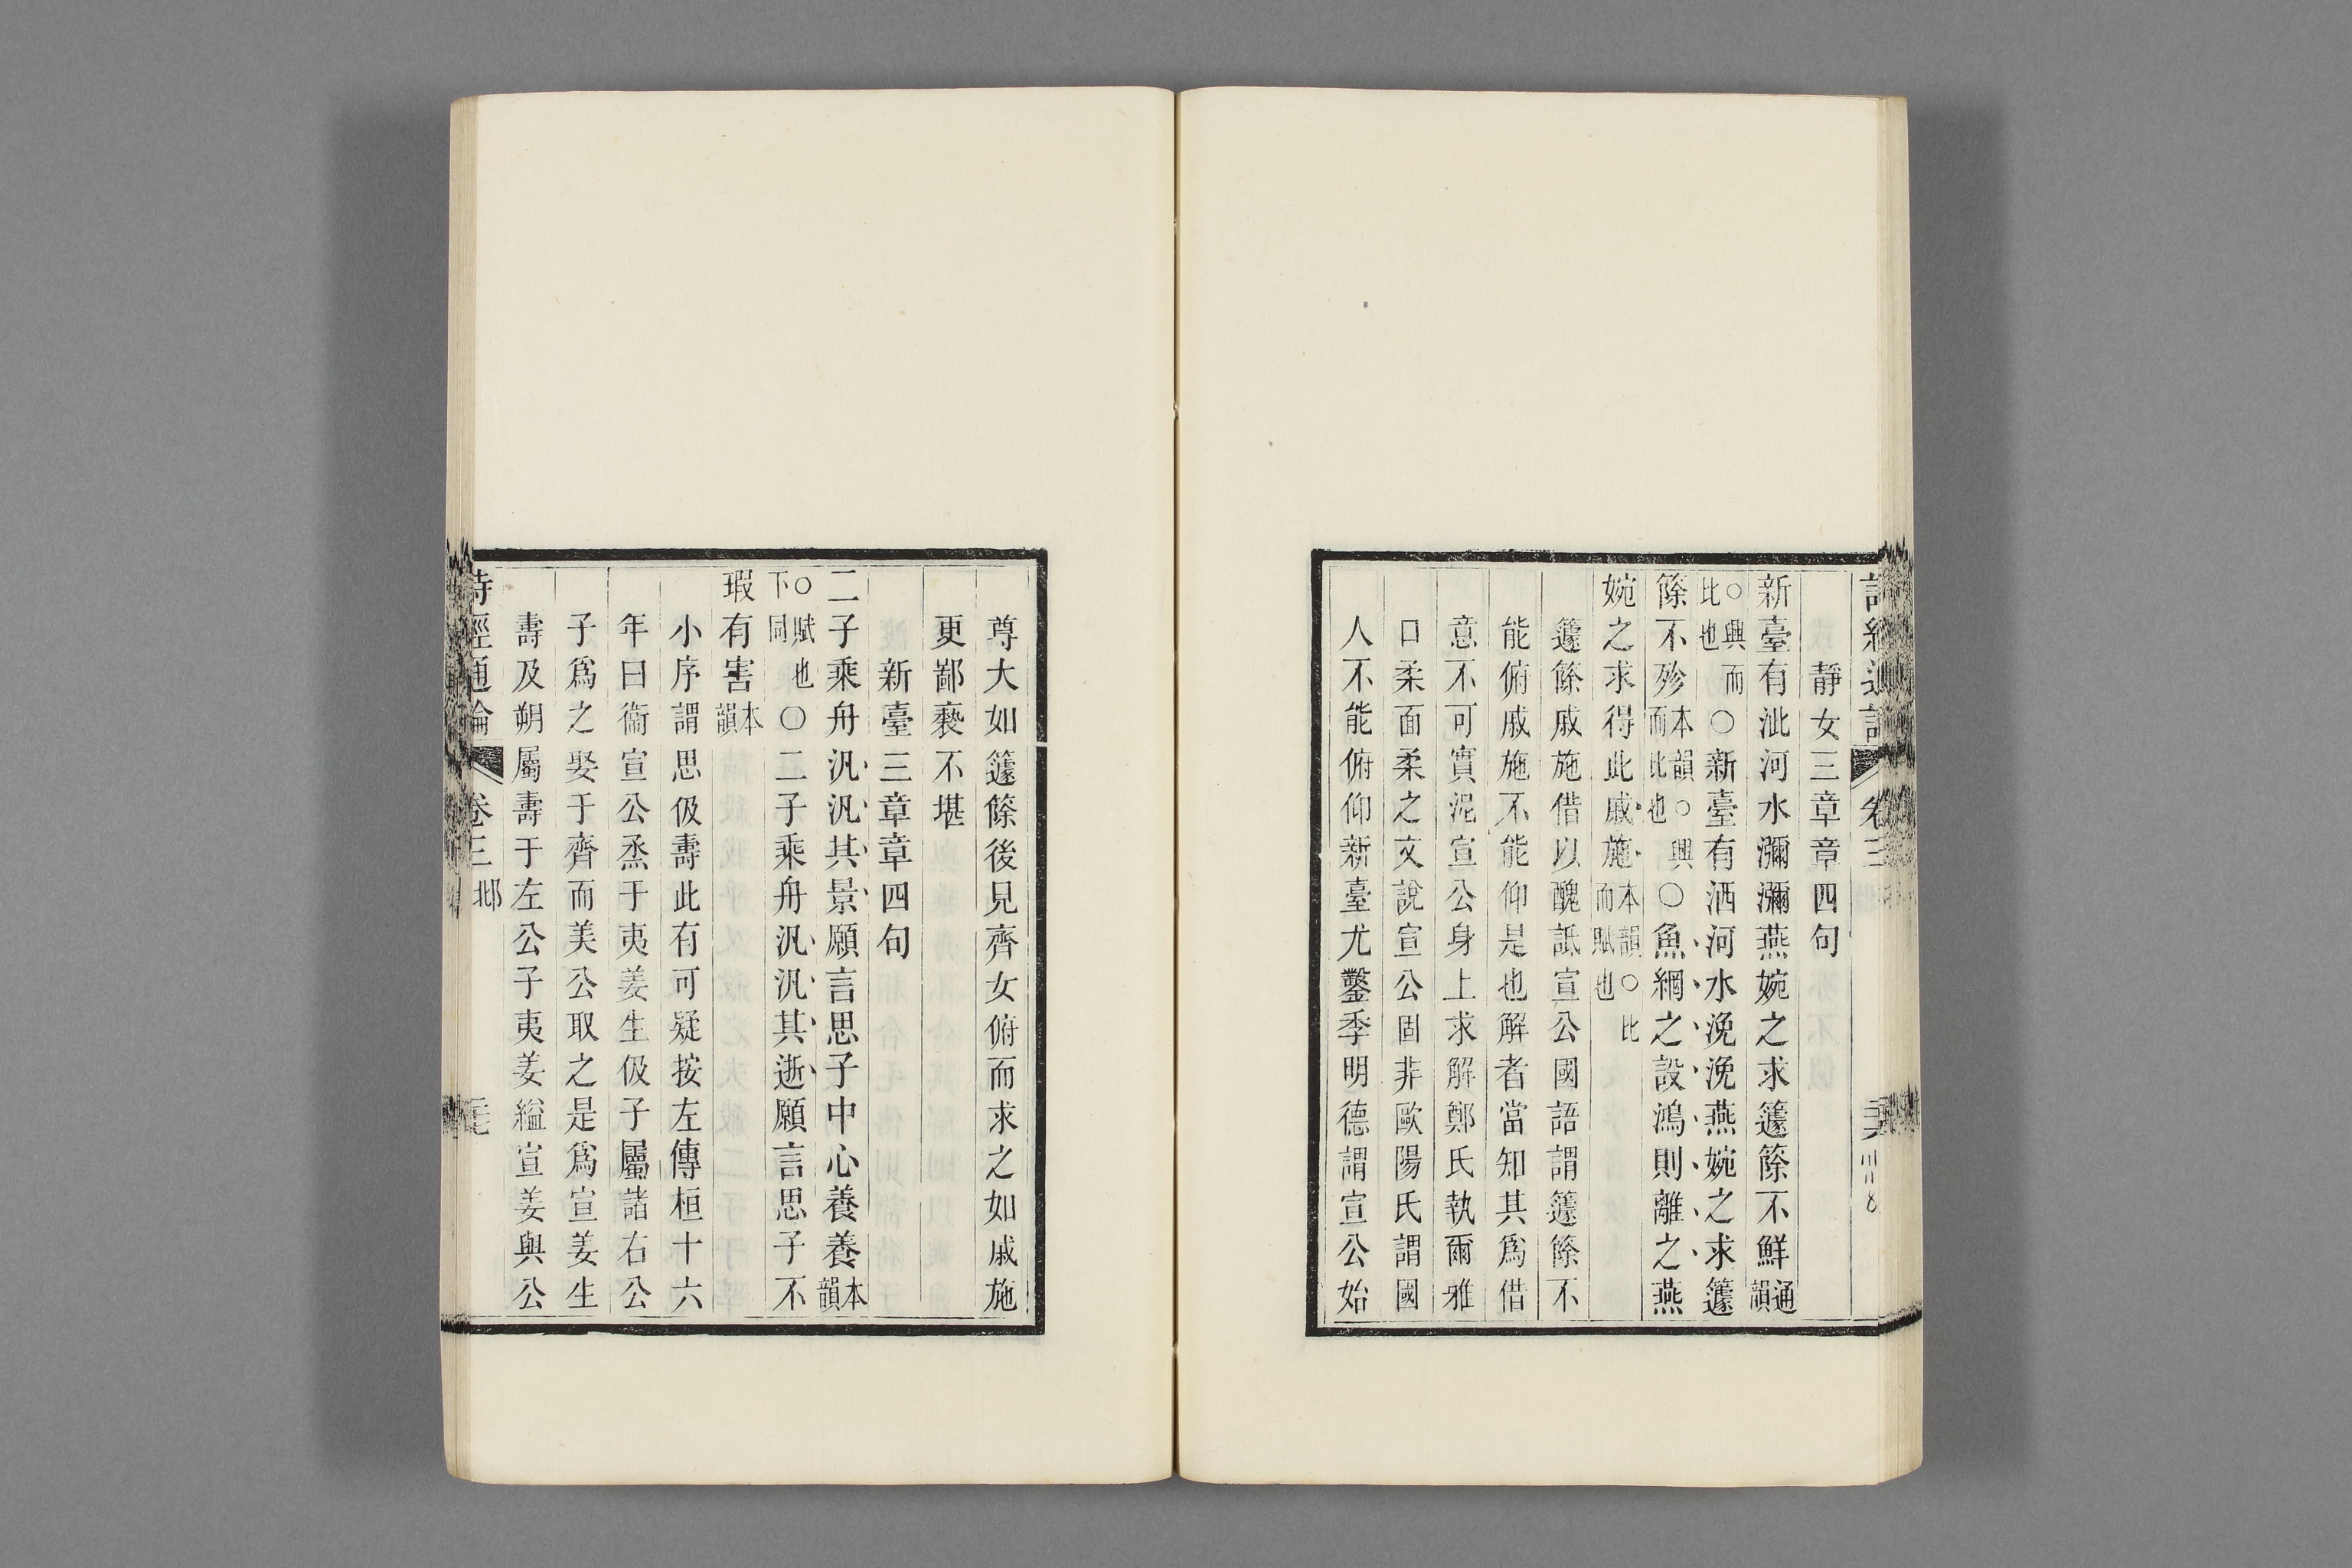 靜女三章章四句
新臺有泚河水瀰瀰燕婉之求籧篨不鮮通韻
○興而比也○新臺有洒河水浼浼燕婉之求籧
篨不殄本韻○興而比也○魚網之設鴻則離之燕
婉之求得此戚施本韻○比而賦也
籧篨戚施借以醜詆宣公國語謂籧篨不
能俯戚施不能仰是也解者當知其爲借
意不可實泥宣公身上求解鄭氏執爾雅
口柔面柔之文說宣公固非歐陽氏謂國
人不能俯仰新臺尤鑿季明德謂宣公始
尊大如籧篨後見齊女俯而求之如戚施
更鄙褻不堪
新臺三章章四句
二子乘舟汎汎其景願言思子中心養養本韻
○賦也下同○二子乘舟汎汎其逝願言思子不
瑕有害本韻
小序謂思伋壽此有可疑按左傳桓十六
年曰衞宣公烝于夷姜生伋子屬諸右公
子爲之娶于齊而美公取之是爲宣姜生
壽及朔屬壽于左公子夷姜縊宣姜與公
詩經通論 卷三 邶 二七